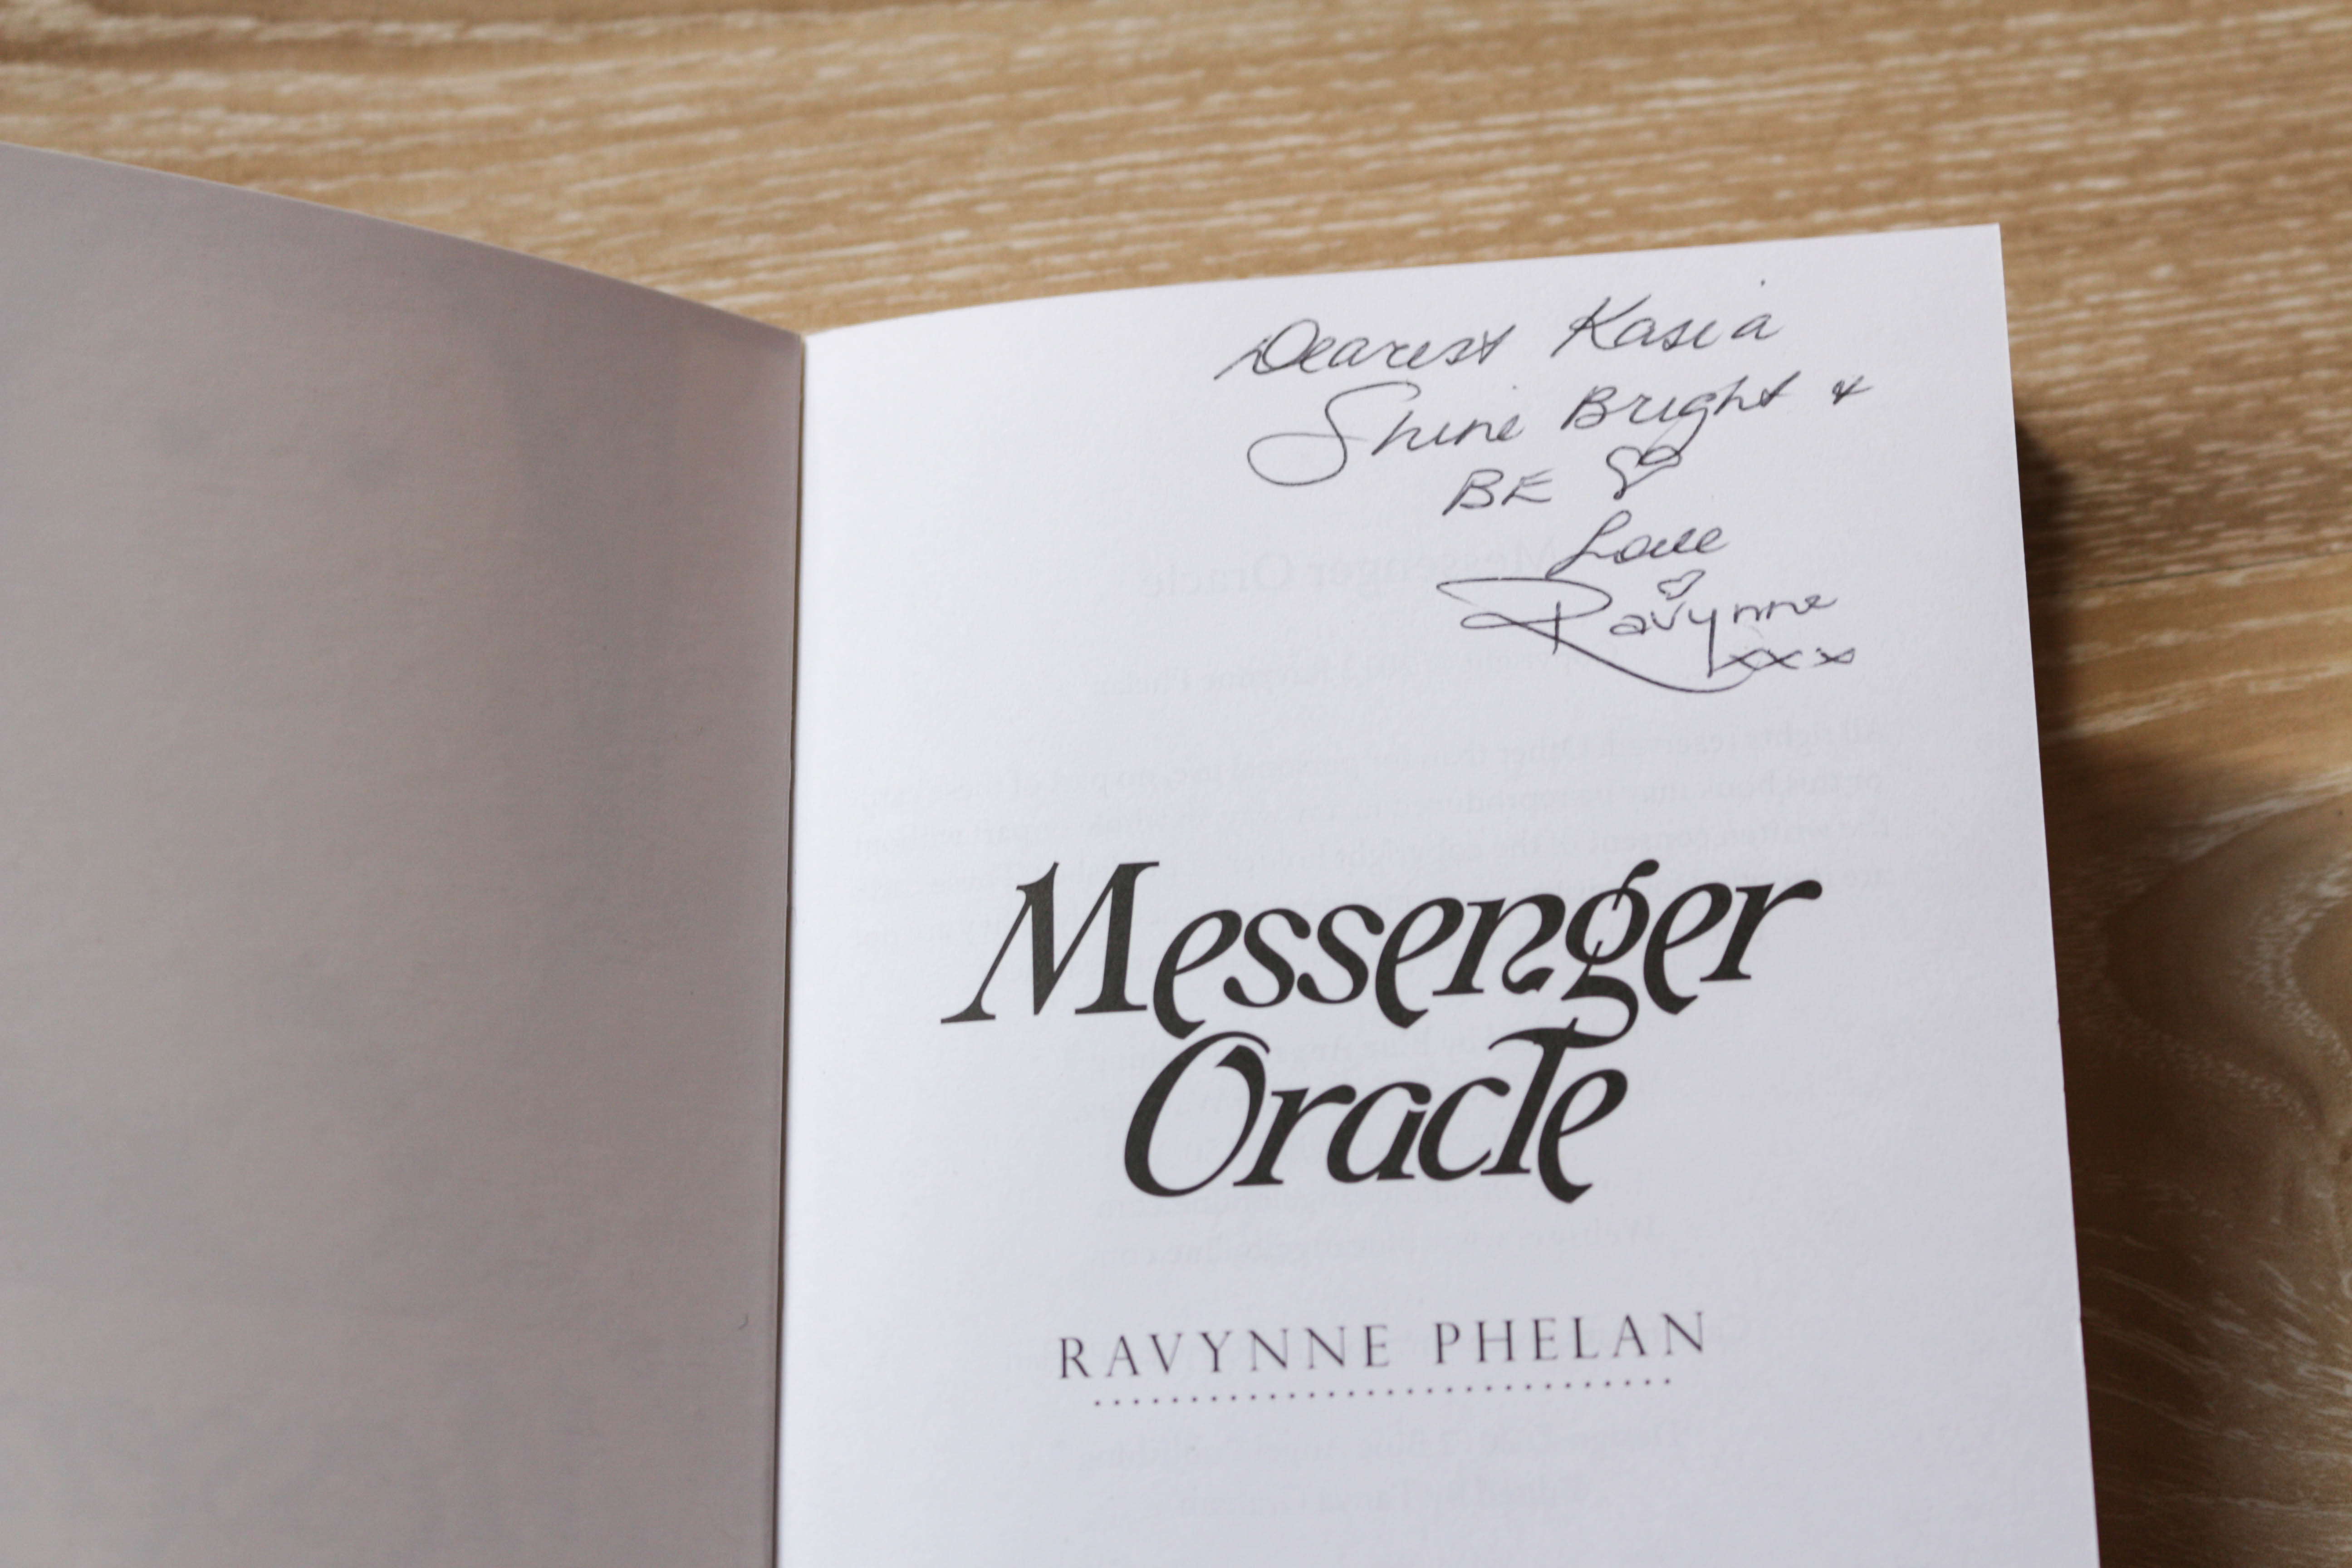 Dearest Kasia
Shine Bright &
BE ♡
Love
Ravynne
xxx
Messenger
Oracle
RAVYNNE PHELAN